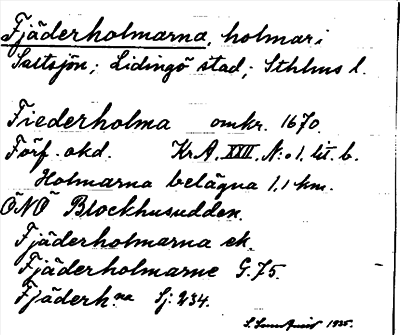 Fjäderholmarna, holmar i
Saltsjön; Lidingö stad; Sthlms l.
Fiederholma omkr. 1670.
Förf. okd. Kr.A. XXII, N:o 1. lit. b.
Holmarna belägna 1,1 km.
ÖNÖ Blockhusudden.
Fjäderholmarna ek.
Fjäderholmarne G. 75.
Fjäderh.na Sj: 234.
1935.